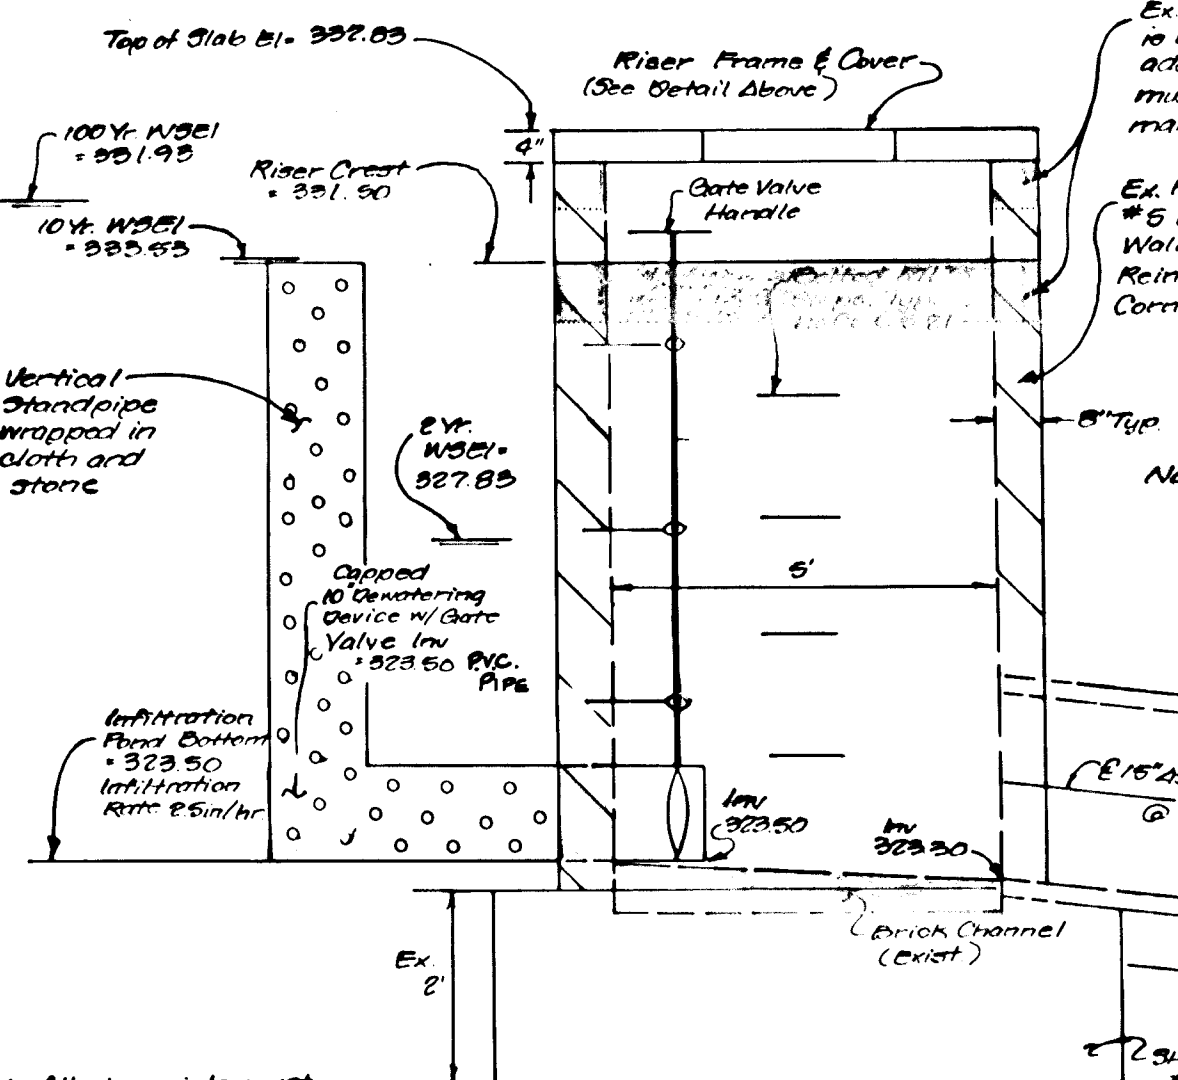 Top of Slab El= 332.83
Riser Frame & Cover
(See Detail Above)
Ex.
is
100 Yr. WSEl
= 331.93
4"
Riser Crest
= 331.50
Gate Valve
Handle
Ex.
#5
10 Yr. WSEl
= 333.53
Vertical
Standpipe
wrapped in
cloth and
stone
2 Yr.
WSEl=
327.83
8" Typ.
5'
Capped
10" Dewatering
Device w/ Gate
Valve Inv
= 323.50 P.V.C.
PIPE
Infiltration
Pond Bottom
= 323.50
Infiltration
Rate 25in/hr
Inv
323.50
Inv
323.30
15"
@
Brick Channel
(Exist.)
Ex.
2'